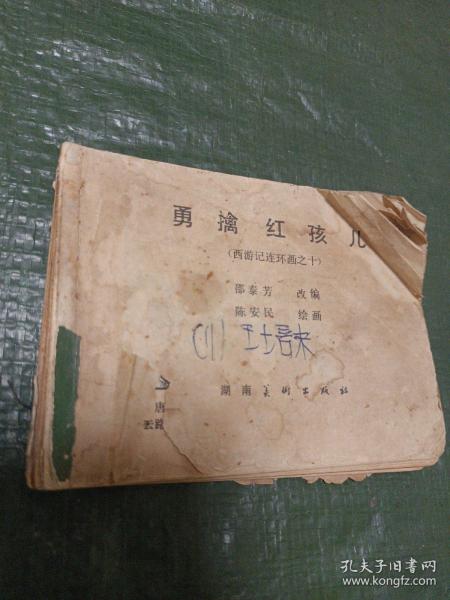 勇擒红孩儿
(西游记连环画之十)
邵泰芳 改编
陈安民 绘画
湖南美术出版社
唐
孔夫子旧书网
www.kongfz.com